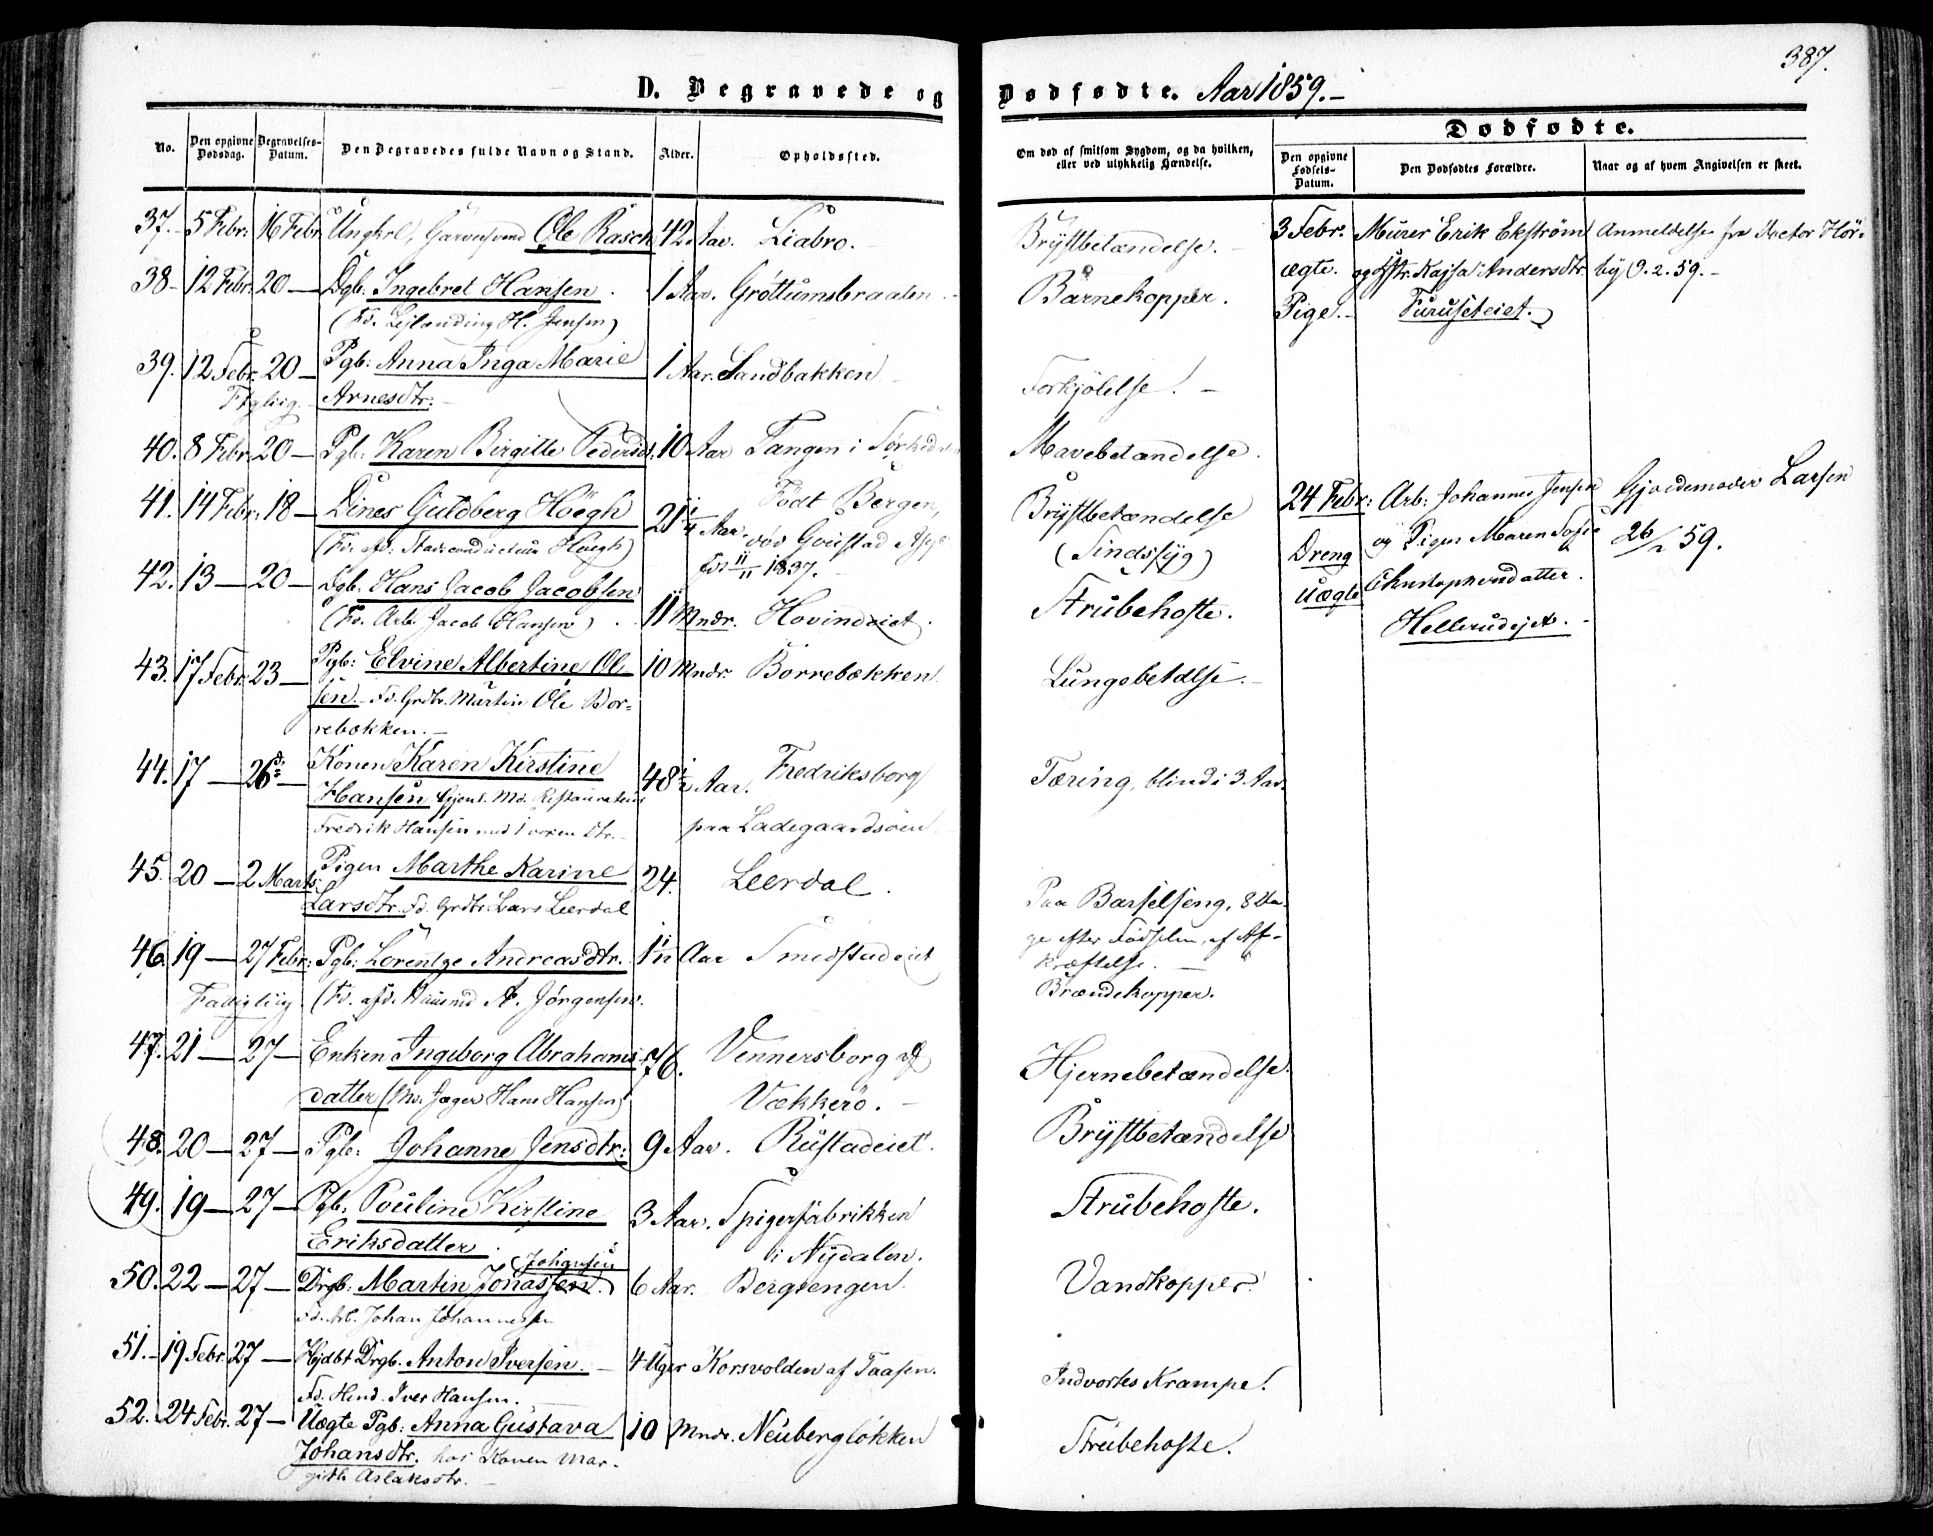 387.
D. Begravede og Dødfødte. Aar 1859.-
No. Den opgivne Dødsdag. Begravelses-Datum. Den Begravedes fulde Navn og Stand. Alder. Opholdssted. Om død af smitsom Sygdom, og da hvilken, eller ved ulykkelig Hændelse.
Dødfødte.
Den opgivne Fødsels-Datum. Den Dødfødtes Forældre. Naar og af hvem Angivelsen er skeet.
37.- 5 Febr: 16 Febr. Ungkrl, Garversvend Ole Rasch 42. Aar. Liabro.- Brystbetændelse.-
38- 12 Febr. 20 — Dgb. Ingebret Hansen. 1 Aar. Grøttumsbraaten.- Barnekopper.
(Fd. Leilænding H. Jensen)
39. 12 Febr. 20 — Pgb: Anna Inga Marie 1 Aar. Sandbakken - Forkjølelse! -
Ftglig. Arnesdtr.-
40. 8 Febr. 20 — Pgb: Karen Birgitte Pedersdt. 10 Aar Tangen i Sørkedalen Mavebetændelse.
41. 14 Febr. 18 — Dines Guldberg Höegh 21 1/4 Aar. Født Bergen, Brystbetændelse
(Fd. afd. Stadsconducteur Höegh) døv Goustad Asyl (Sindssyg)
For 11/11 1837.
42. 13 — 20 — Dgb. Hans Jacob Jacobsen 11 Mndr. Hovindeiet. Strubehoste.
(Fd. Arb. Jacob Hansen).
43. 17 Febr. 23 — Pgb: Elvine Albertine Ol- 10 Mndr. Borrebækken Lungebetdlse.-
sen.- Fd. Grdbr. Martin Ole Bor=
rebækken.-
44. 17 — 26de — Konen Karen Kirstine 48 1/2 Aar. Fredriksborg Tæring, blind i 3 Aar.
Hansen Gjenl. Md. Restaurateur
Fredrik Hansen med 1 voxen Dtr.- paa Ladegaardsøen
45. 20 — 2 Marts. Pigen Marthe Karine 24. Leerdal. Paa Barselseng, 8 Da-
Larsdtr. Fd. Grdbr. Lars Leerdal ge efter Fødselen, af Af-
kræftelse. -
46. 19 — 27 Febr: Pgb: Lorentze Andreasdtr. 1 1/12 Aar Smedstadeiet
Fattiglig. (Fd. afd. Huusmd A. Jørgensen. Brændekopper.
47. 21 — 27 — Enken Ingeborg Abrahams- 76. Vennersborg af Hjernebetændelse.
datter (Md. Jæger Hans Hansen) Vækkerø. -
48. 20 — 27 — Pgb: Johanne Jensdtr: 9 Aar. Rustadeiet. Brystbetændelse
49. 19 — 27 — Pgb. Pouline Kirstine 3 Aar. Spigerfabrikken Strubehoste.
Eriksdatter. i Nydalen.
Johansen
50. 22 — 27 — Drgb: Martin Jonassen. 6 Aar. Bergsengen. Vandkopper!
Fd. Arb. Johan Johannessen
51.- 19 Febr. 27 — Hjdbt Drgb. Anton Iversen.- 4 Uger Korsvolden af Taasen. Indvortes Krampe!
Fd. Hmd. Iver Hansen.
52. 24 Febr. 27 — Uægte Pgb: Anna Gustava 10 Mndr. Neuberg løkken Strubehoste.
Johansdtr. hos Konen Mar-
githe Aslaksdtr. -
3 Febr. Murer Erik Ekstrøm Anmeldelse fra Rector Hør-
ægte. og Hstr. Kajsa Andersdtr. by 9.2.59.-
Pige.- Furuseteiet.
24 Febr: Arb: Johannes Jensen Gjordemoder Larsen
Dreng og Pigen Maren Sofie 26/2 59.
Uægte Christophersdatter.
Hellerudejet.-